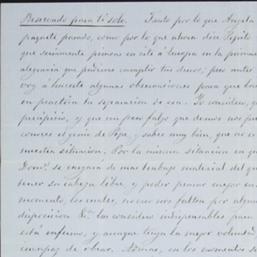 Reservado para ti solo. Tanto por lo que Angela
paquete pasado, como por lo que ahora dice Pepito
que seriamente piensan en irte á Europa en la primera
alegraria que pudieras cumplir tus deseos; pero antes
voy á hacerte algunas observaciones para que
en practica la separacion de esa. Yo considero, q
precipicio, y que un paso falso que demos nos pue
conoces el genio de Pepe, y sabes muy bien, que no es
nuestra situacion. Por la misma situacion en que
Domº. se encarga de mas trabajo material del que
tener su cabeza libre, y poder pensar mejor en
momento, los cuales, no creo nos falten por algun
disposicion &ª. las cosas indispensables para
está enfermo, y aunque tenga la mejor voluntad
incapaz de obrar. Ademas, en los momentos de